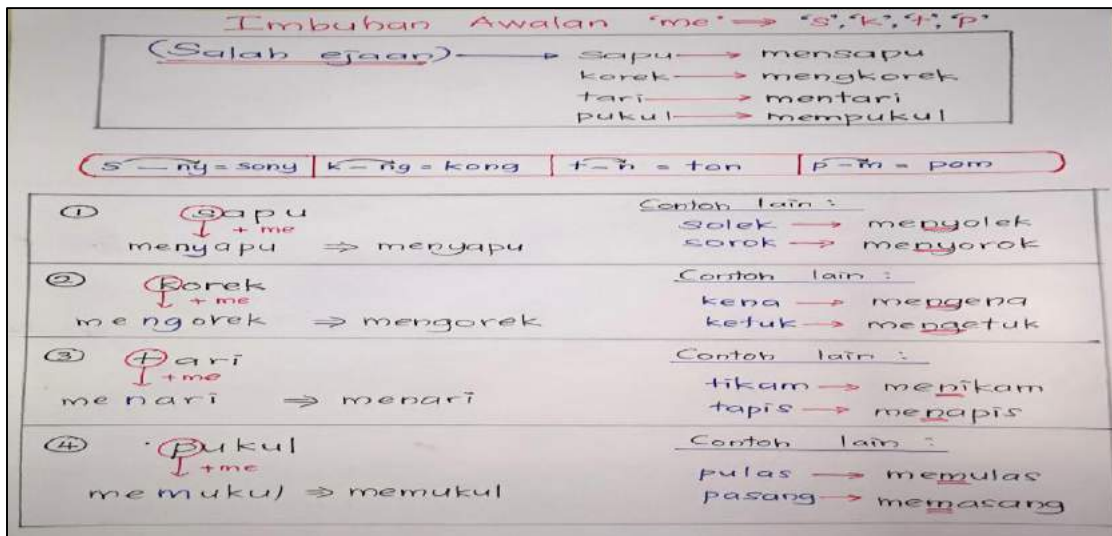 Imbuhan Awalan 'me' ⇒ 's', 'k', 't', 'p'
(Salah ejaan) → sapu → mensapu
korek → mengkorek
tari → mentari
pukul → mempukul
s - ny = sony | k - ng = kong | t - n = ton | p - m = pom
① sapu
+ me
menyapu ⇒ menyapu
Contoh lain :
solek → menyolek
sorok → menyorok
② korek
+ me
mengorek ⇒ mengorek
Contoh lain :
kena → mengena
ketuk → mengetuk
③ tari
+ me
menari ⇒ menari
Contoh lain :
tikam → menikam
tapis → menapis
④ pukul
+ me
memukul ⇒ memukul
Contoh lain :
pulas → memulas
pasang → memasang